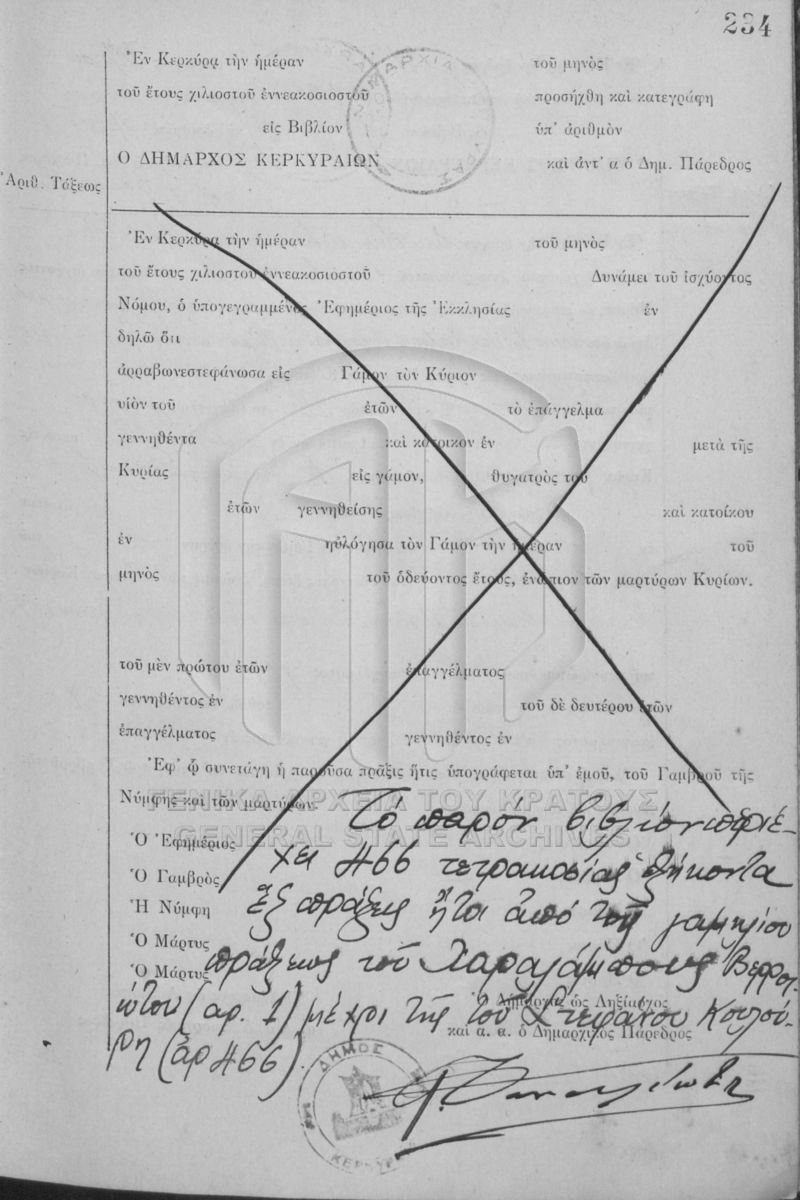 234
Ἐν Κερκύρᾳ τὴν ἡμέραν τοῦ μηνὸς
τοῦ ἔτους χιλιοστοῦ ἐννεακοσιοστοῦ προσήχθη καὶ κατεγράφη
εἰς Βιβλίον ὑπ' ἀριθμὸν
Ο ΔΗΜΑΡΧΟΣ ΚΕΡΚΥΡΑΙΩΝ καὶ ἀντ' α ὁ Δημ. Πάρεδρος
Ἀριθ. Τάξεως
Ἐν Κερκύρᾳ τὴν ἡμέραν τοῦ μηνὸς
τοῦ ἔτους χιλιοστοῦ ἐννεακοσιοστοῦ Δυνάμει τοῦ ἰσχύοντος
Νόμου, ὁ ὑπογεγραμμένος Ἐφημέριος τῆς Ἐκκλησίας ἐν
δηλῶ ὅτι
ἀρραβωνεστεφάνωσα εἰς Γάμον τὸν Κύριον
υἱὸν τοῦ ἐτῶν τὸ ἐπάγγελμα
γεννηθέντα καὶ κάτοικον ἐν μετὰ τῆς
Κυρίας εἰς γάμον, θυγατρὸς τοῦ
ἐτῶν γεννηθείσης καὶ κατοίκου
ἐν ηὐλόγησα τὸν Γάμον τὴν ἡμέραν τοῦ
μηνὸς τοῦ ὁδεύοντος ἔτους, ἐνώπιον τῶν μαρτύρων Κυρίων.
τοῦ μὲν πρώτου ἐτῶν ἐπαγγέλματος
γεννηθέντος ἐν τοῦ δὲ δευτέρου ἐτῶν
ἐπαγγέλματος γεννηθέντος ἐν
Ἐφ' ᾧ συνετάγη ἡ παροῦσα πρᾶξις ἥτις ὑπογράφεται ὑπ' ἐμοῦ, τοῦ Γαμβροῦ τῆς
Νύμφης καὶ τῶν μαρτύρων.
ΓΕΝΙΚΑ ΑΡΧΕΙΑ ΤΟΥ ΚΡΑΤΟΥΣ
GENERAL STATE ARCHIVES
Ὁ Ἐφημέριος
Ὁ Γαμβρὸς
Ἡ Νύμφη
Ὁ Μάρτυς
Ὁ Μάρτυς
Τό παρόν βιβλίον περιέ-
χει 466 τετρακοσίας ἑξήκοντα
ἕξ πράξεις ἤτοι ἀπό τῆς γαμηλίου
πράξεως τοῦ Χαραλάμπους
ώτου (αρ. 1) μέχρι τῆς τοῦ Στεφάνου Κουλού-
ρη (ἀρ 466).
Ὁ Δήμαρχος ὡς Ληξίαρχος
καὶ α. α. ὁ Δημαρχικὸς Πάρεδρος
ΔΗΜΟΣ